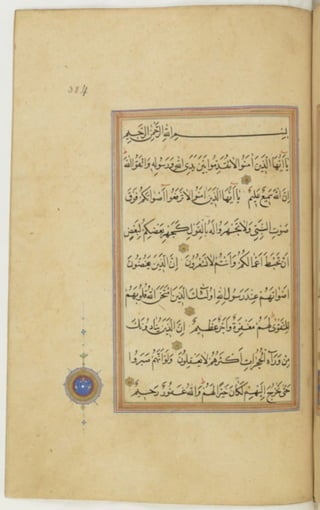 324
بسم الله الرحمن الرحيم
يا أيها الذين آمنوا لا تقدموا بين يدي الله ورسوله واتقوا الله
إن الله سميع عليم يا أيها الذين آمنوا لا ترفعوا أصواتكم فوق
صوت النبي ولا تجهروا له بالقول كجهر بعضكم لبعض
أن تحبط أعمالكم وأنتم لا تشعرون إن الذين يغضون
أصواتهم عند رسول الله أولئك الذين امتحن الله قلوبهم
للتقوى لهم مغفرة وأجر عظيم إن الذين ينادونك
من وراء الحجرات أكثرهم لا يعقلون ولو أنهم صبروا
حتى تخرج إليهم لكان خيرا لهم والله غفور رحيم